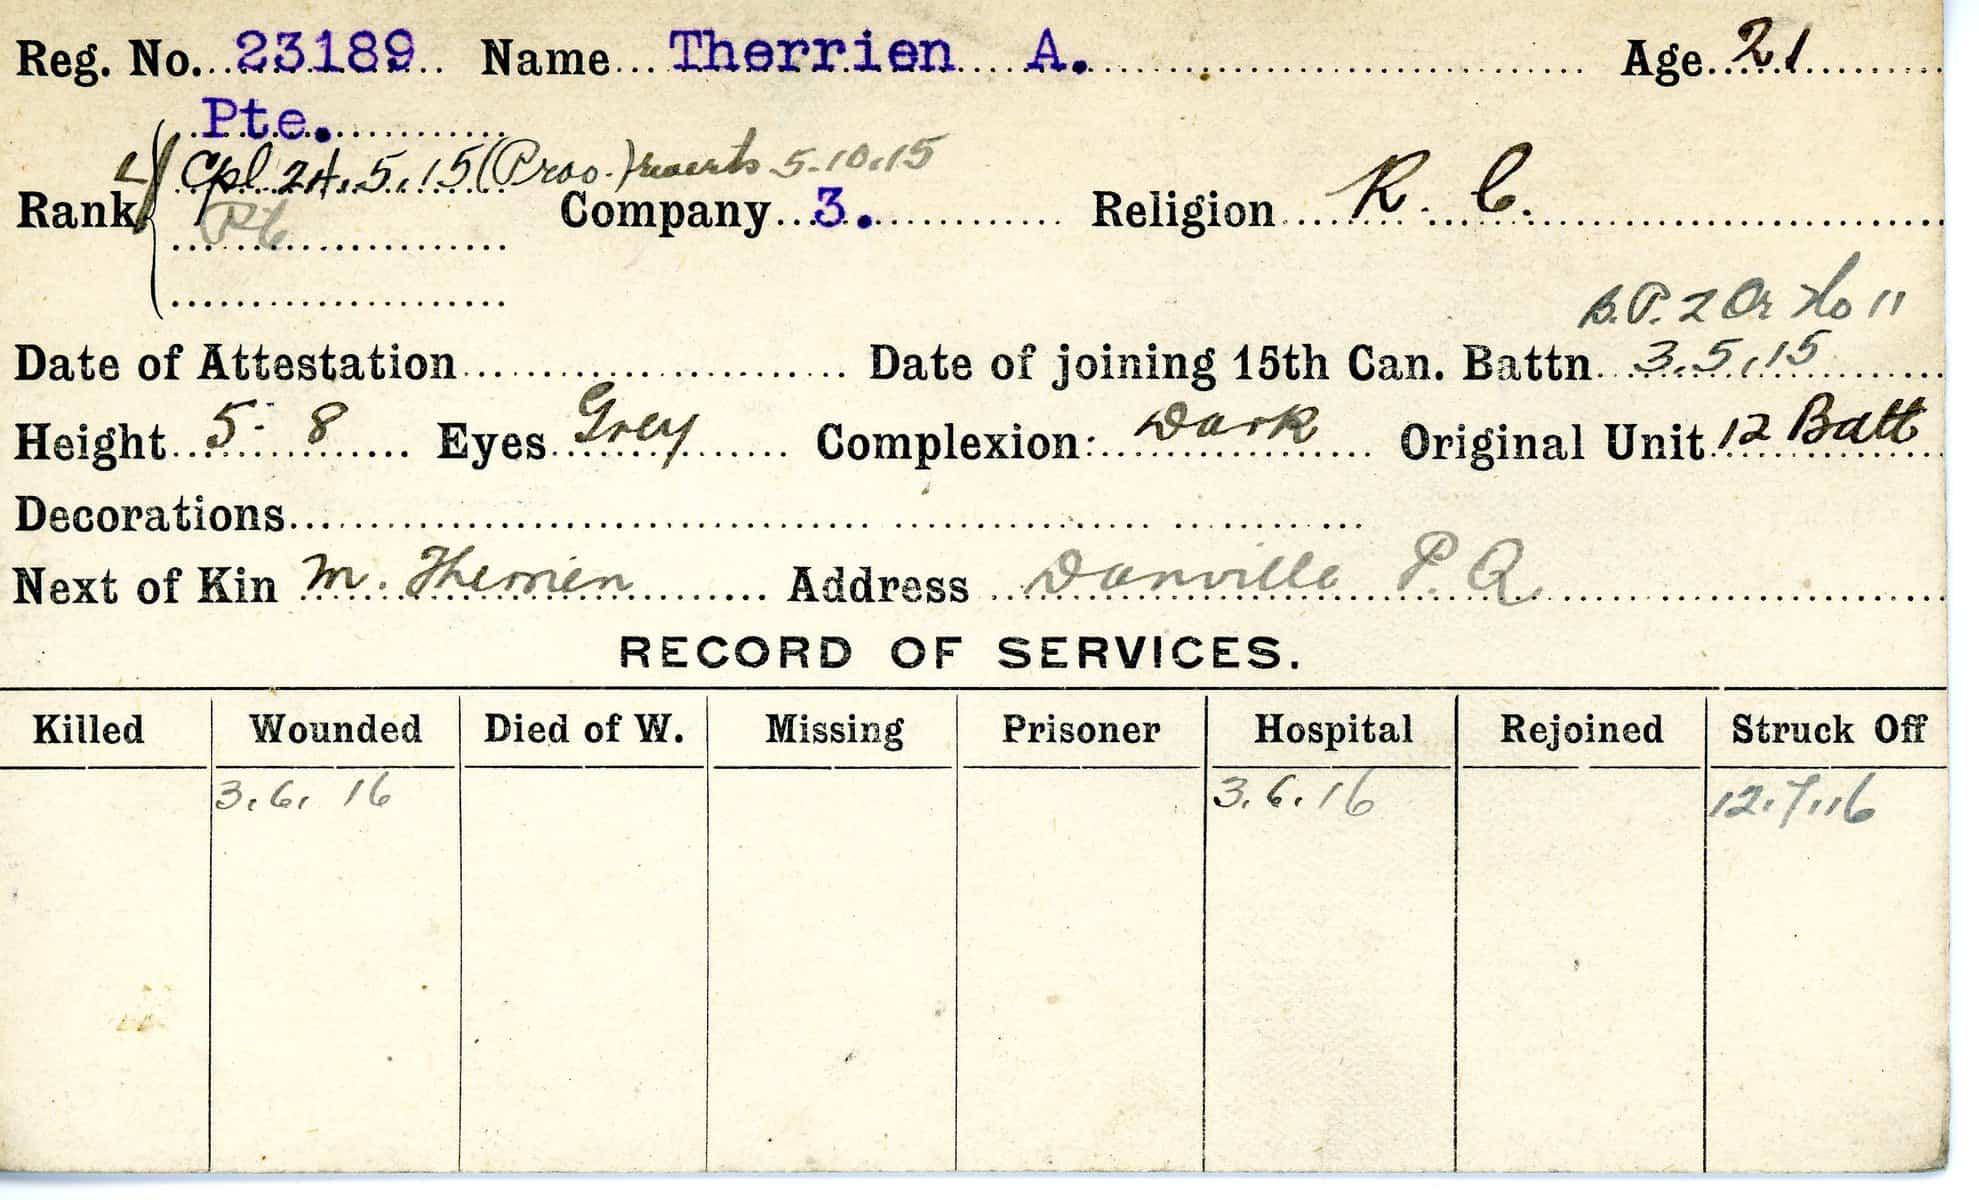 Reg. No. 23189 Name Therrien A. Age 21
Pte.
L/Cpl 24.5.15 (Prov.) reverts 5.10.15
Rank Pte Company 3. Religion R. C.
B.P. 2 Or No 11
Date of Attestation Date of joining 15th Can. Battn 3.5.15
Height 5-8 Eyes Grey Complexion: Dark Original Unit 12 Batt
Decorations
Next of Kin M. Therrien Address Danville P.Q
RECORD OF SERVICES.
Killed Wounded Died of W. Missing Prisoner Hospital Rejoined Struck Off
3.6.16 3.6.16 12.7.16